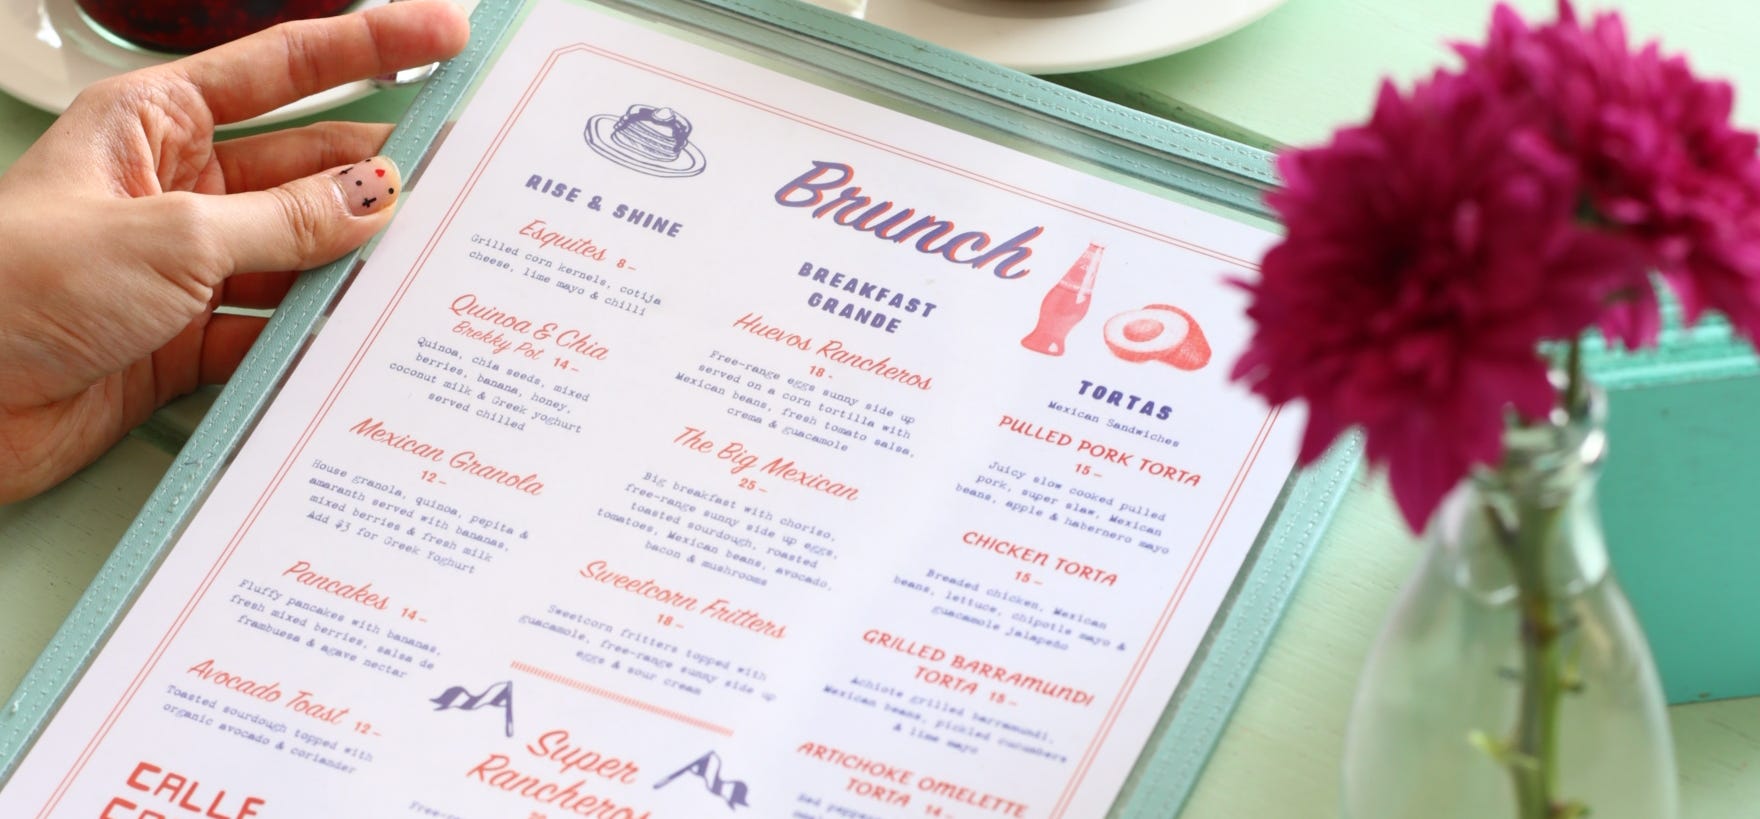 Brunch
RISE & SHINE
Esquites 8-
Grilled corn kernels, cotija
cheese, lime mayo & chilli
Quinoa & Chia
Brekky Pot 14-
Quinoa, chia seeds, mixed
berries, banana, honey,
coconut milk & Greek yoghurt
served chilled
Mexican Granola
12-
House granola, quinoa, pepita &
amaranth served with bananas,
mixed berries & fresh milk
Add $3 for Greek Yoghurt
Pancakes 14-
Fluffy pancakes with bananas,
fresh mixed berries, salsa de
frambuesa & agave nectar
Avocado Toast 12-
Toasted sourdough topped with
organic avocado & coriander
CALLE
BREAKFAST
GRANDE
Huevos Rancheros
18-
Free-range eggs sunny side up
served on a corn tortilla with
Mexican beans, fresh tomato salsa,
crema & guacamole
The Big Mexican
25-
Big breakfast with choriso,
free-range sunny side up eggs,
toasted sourdough, roasted
tomatoes, Mexican beans, avocado,
bacon & mushrooms
Sweetcorn Fritters
18-
Sweetcorn fritters topped with
guacamole, free-range sunny side up
eggs & sour cream
Super
Rancheros
TORTAS
Mexican Sandwiches
PULLED PORK TORTA
15-
Juicy slow cooked pulled
pork, super slaw, Mexican
beans, apple & habernero mayo
CHICKEN TORTA
15-
Breaded chicken, Mexican
beans, lettuce, chipotle mayo &
guacamole jalapeño
GRILLED BARRAMUNDI
TORTA 15-
Achiote grilled barramundi,
Mexican beans, pickled cucumbers
& lime mayo
ARTICHOKE OMELETTE
TORTA 14-